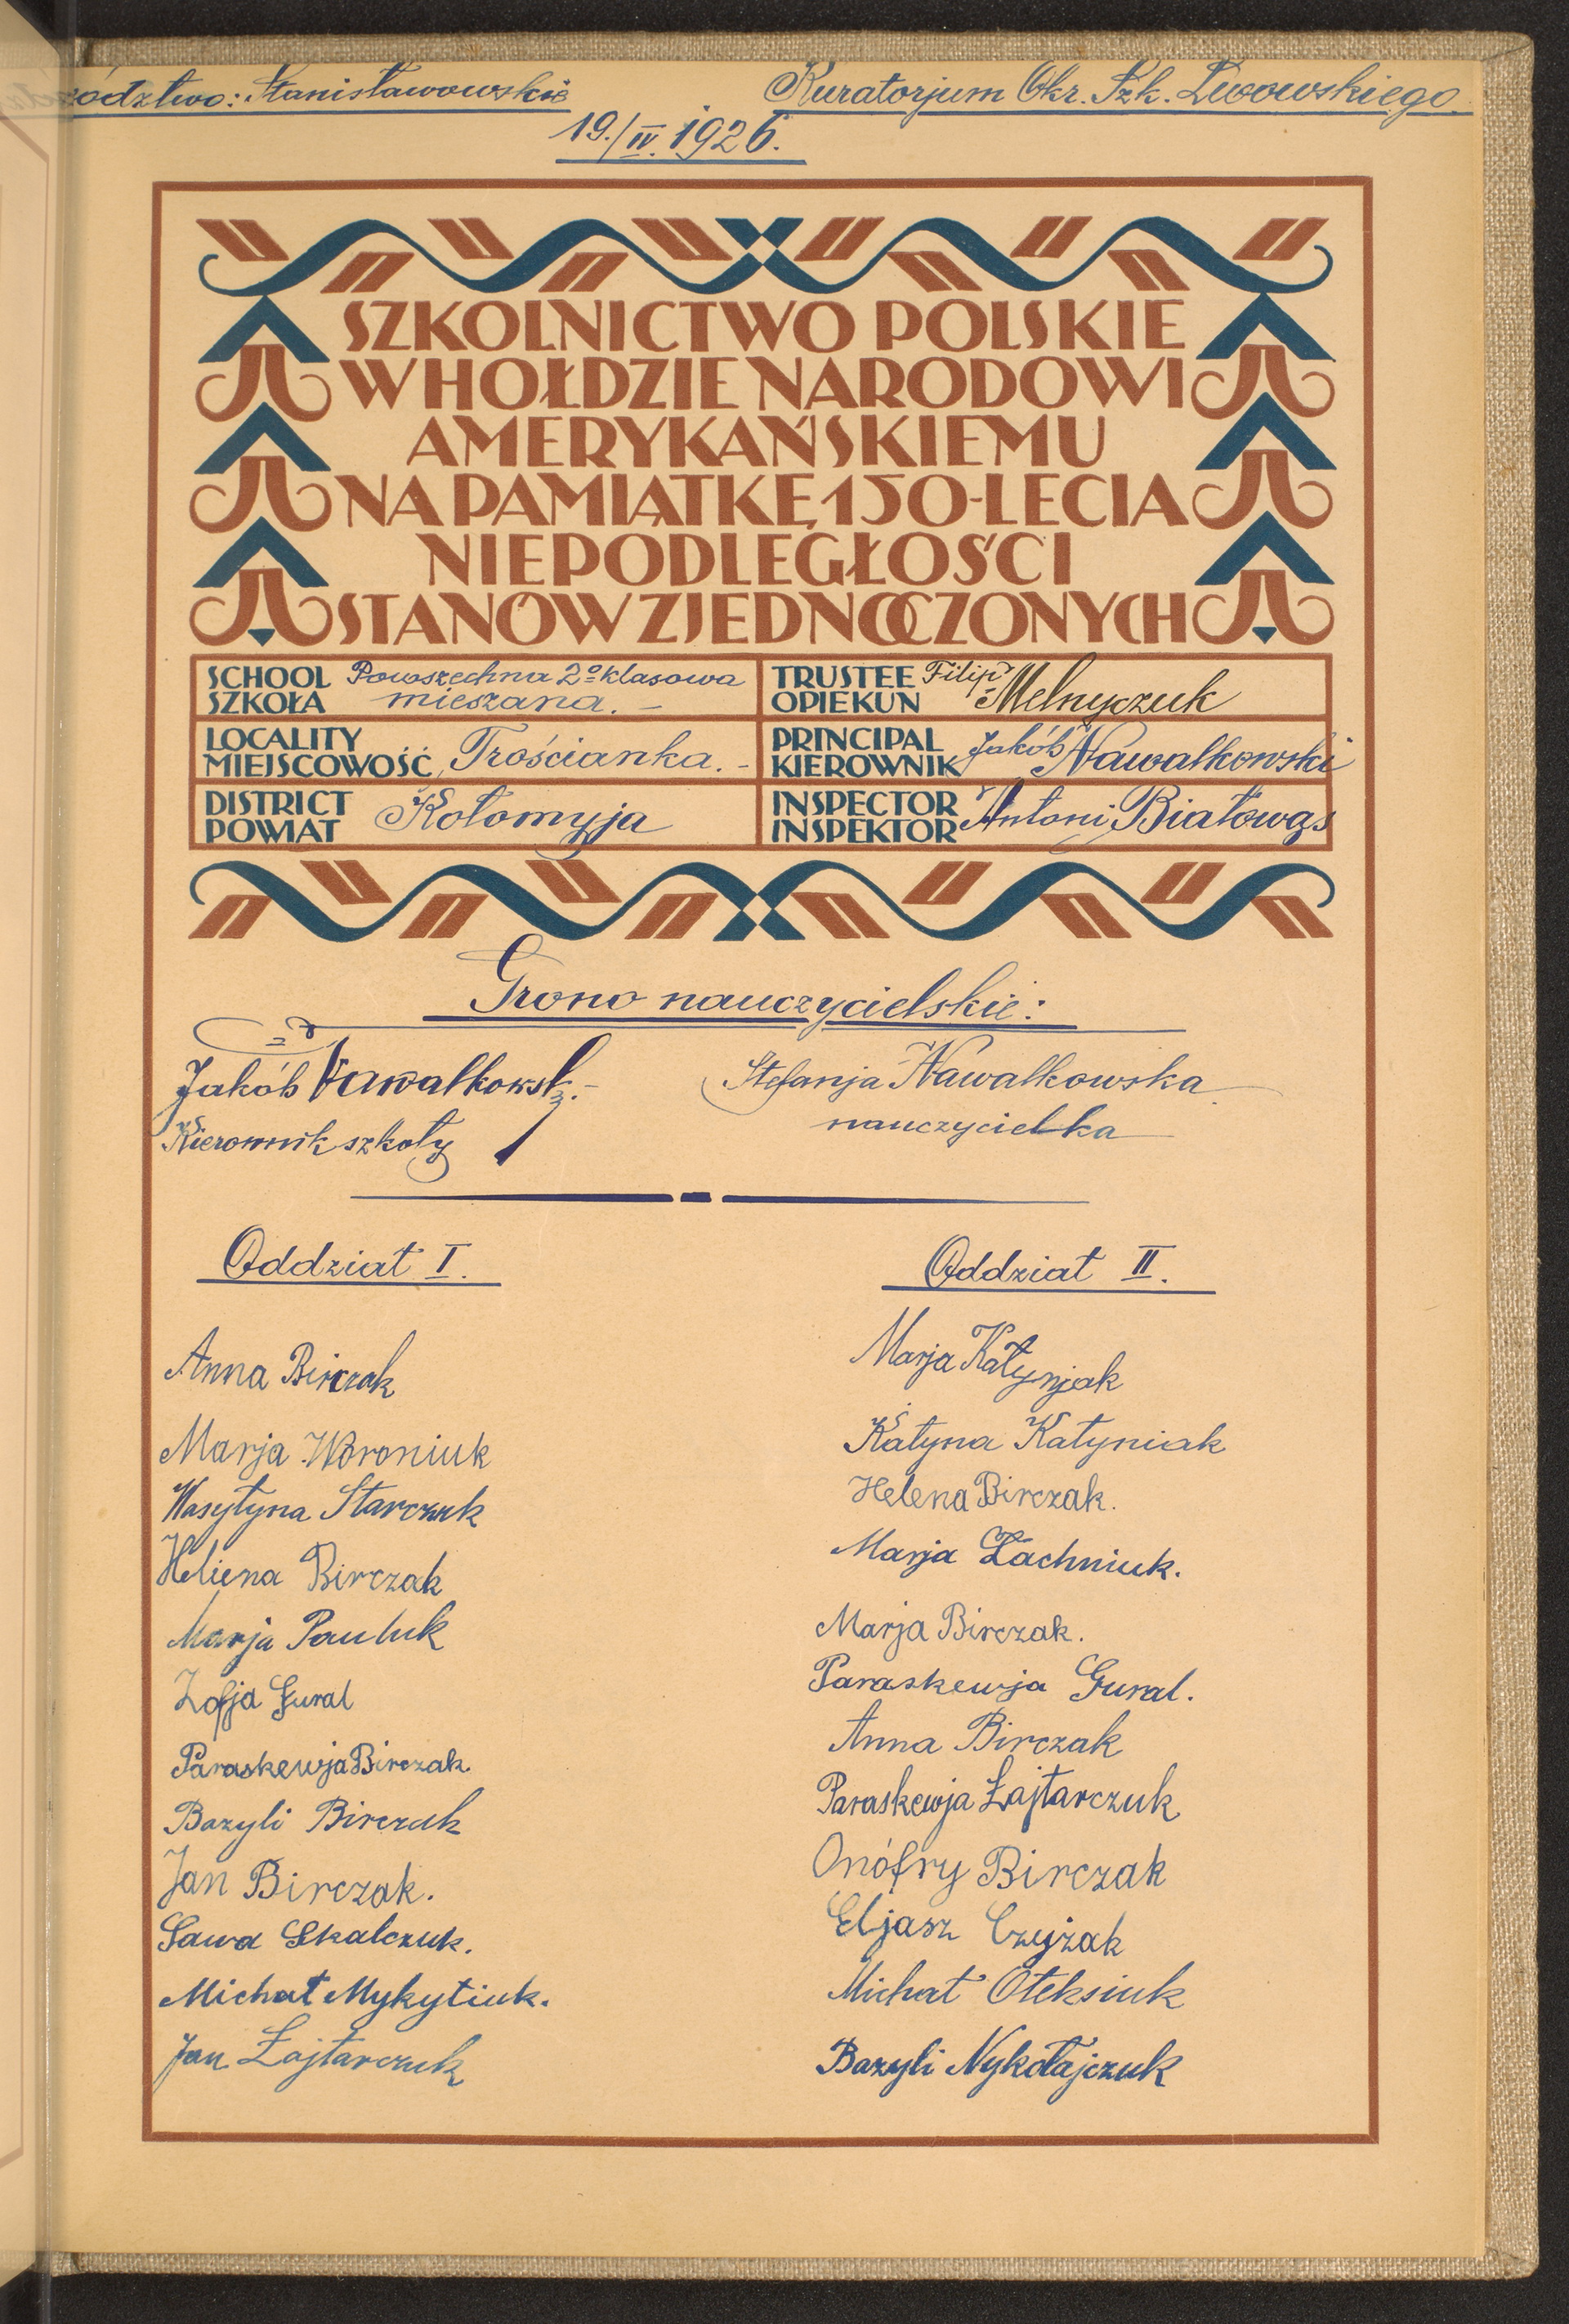 ództwo: Stanisławowskie Kuratorjum Okr. Szk. Lwowskiego.
19./IV. 1926.
SZKOLNICTWO POLSKIE
W HOŁDZIE NARODOWI
AMERYKAŃSKIEMU
NA PAMIĄTKĘ 150-LECIA
NIEPODLEGŁOŚCI
STANÓW ZJEDNOCZONYCH
SCHOOL
SZKOŁA
Powszechna 2º klasowa
mieszana. -
TRUSTEE
OPIEKUN
Filip Melnyczuk
LOCALITY
MIEJSCOWOŚĆ
Trościanka. -
PRINCIPAL
KIEROWNIK
Jakób Nawalkowski
DISTRICT
POWIAT
Kołomyja
INSPECTOR
INSPEKTOR
Antoni Białowąs
Grono nauczycielskie:
Jakób Nawalkowski. - Stefanja Nawalkowska
Kierownik szkoły nauczycielka
Oddział I.
Anna Birczak
Marja Woroniuk
Wasyłyna Starczuk
Heliena Birczak
Marja Pauluk
Zofja Gural
Paraskewja Birczak
Bazyli Birczak
Jan Birczak.
Sawa Skalczuk.
Michał Mykytiuk.
Jan Łajtarczuk
Oddział II.
Marja Katynjak
Katyna Katyniak
Helena Birczak.
Marja Łachniuk.
Marja Birczak.
Paraskewja Gural.
Anna Birczak
Paraskewja Łajtarczuk
Onófry Birczak
Eljasz Czyżak
Michał Oleksiuk
Bazyli Nykołajczuk